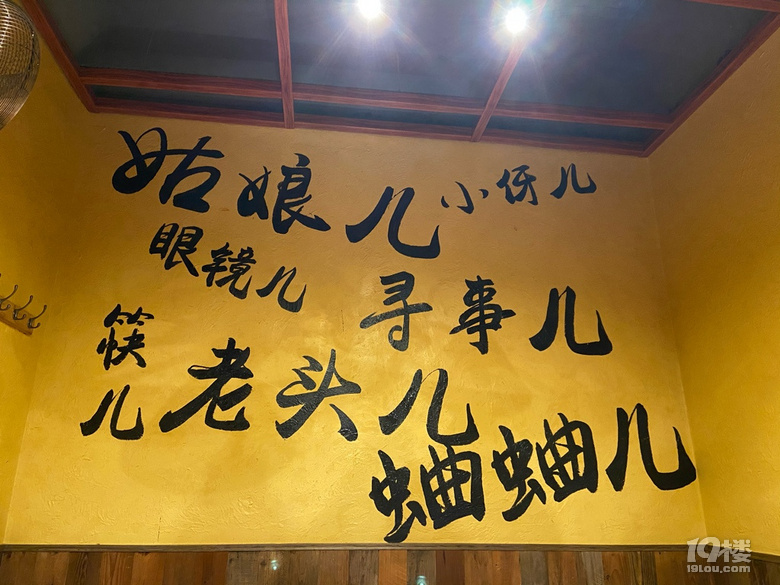 姑娘儿
小伢儿
眼镜儿
寻事儿
筷儿
老头儿
蛐蛐儿
19楼
19lou.com